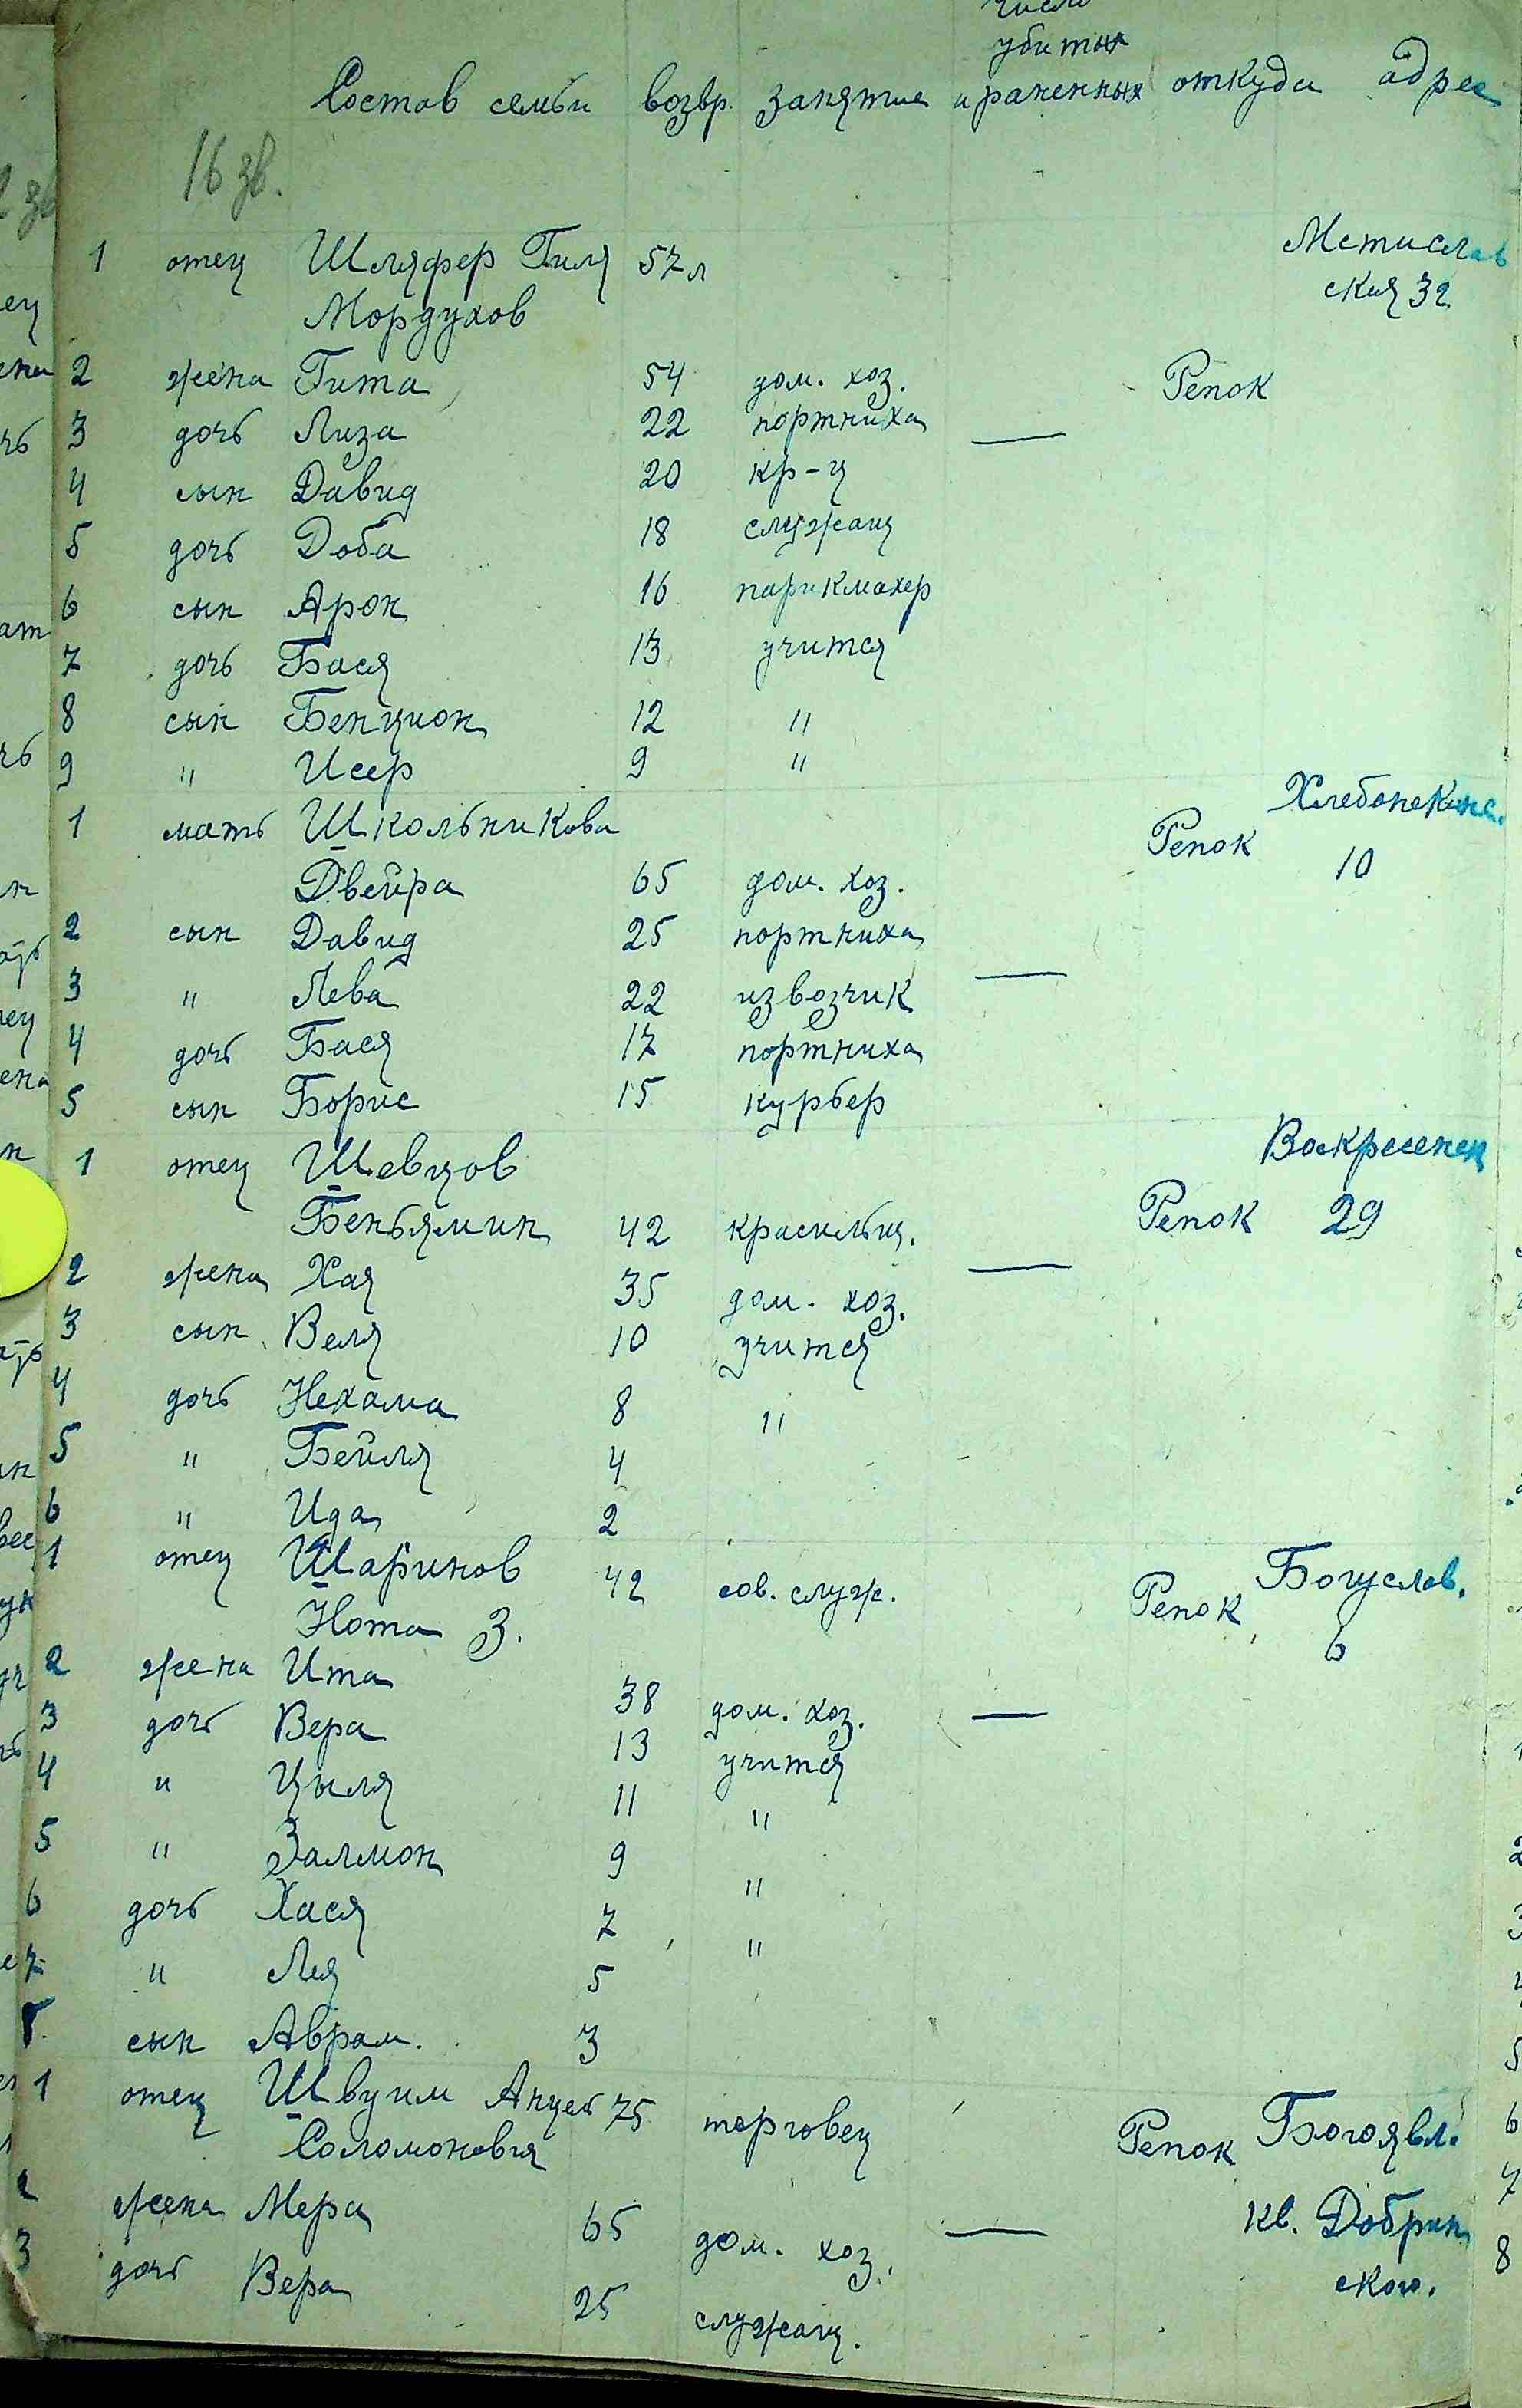 число
убитых
Состав семьи возвр. занятие и раненных откуда адрес
16 зв.
1 отец Шляфер Гиля 57 л Мстислав
Мордухов ская 32
2 жена Гита 54 дом. хоз. Репок
3 дочь Лиза 22 портниха —
4 сын Давид 20 кр-ц
5 дочь Доба 18 служащ
6 сын Арон 16 парикмахер
7 дочь Бася 13 учится
8 сын Бенцион 12 "
9 " Исер 9 "
1 мать Школьникова Репок Хлебопекарс.
Двейра 65 дом. хоз. 10
2 сын Давид 25 портниха
3 " Лева 22 извозчик —
4 дочь Бася 17 портниха
5 сын Борис 15 курьер
1 отец Шевцов Воскресенск
Беньямин 42 красильщ. Репок 29
2 жена Хая 35 дом. хоз. —
3 сын Веля 10 учится
4 дочь Нехама 8 "
5 " Бейля 4
6 " Ида 2
1 отец Шаринов 42 сов. служ. Репок Богуслав.
Нота З. 6
2 жена Ита 38 дом. хоз. —
3 дочь Вера 13 учится
4 " Цыля 11 "
5 " Залмон 9 "
6 дочь Хася 7 "
7 " Лея 5
8 сын Аврам. 3
1 отец Швуим 75 торговец Репок Богоявл.
Соломонович
2 жена Мера 65 дом. хоз. — кв. Добрин
3 дочь Вера 25 служащ. ского.